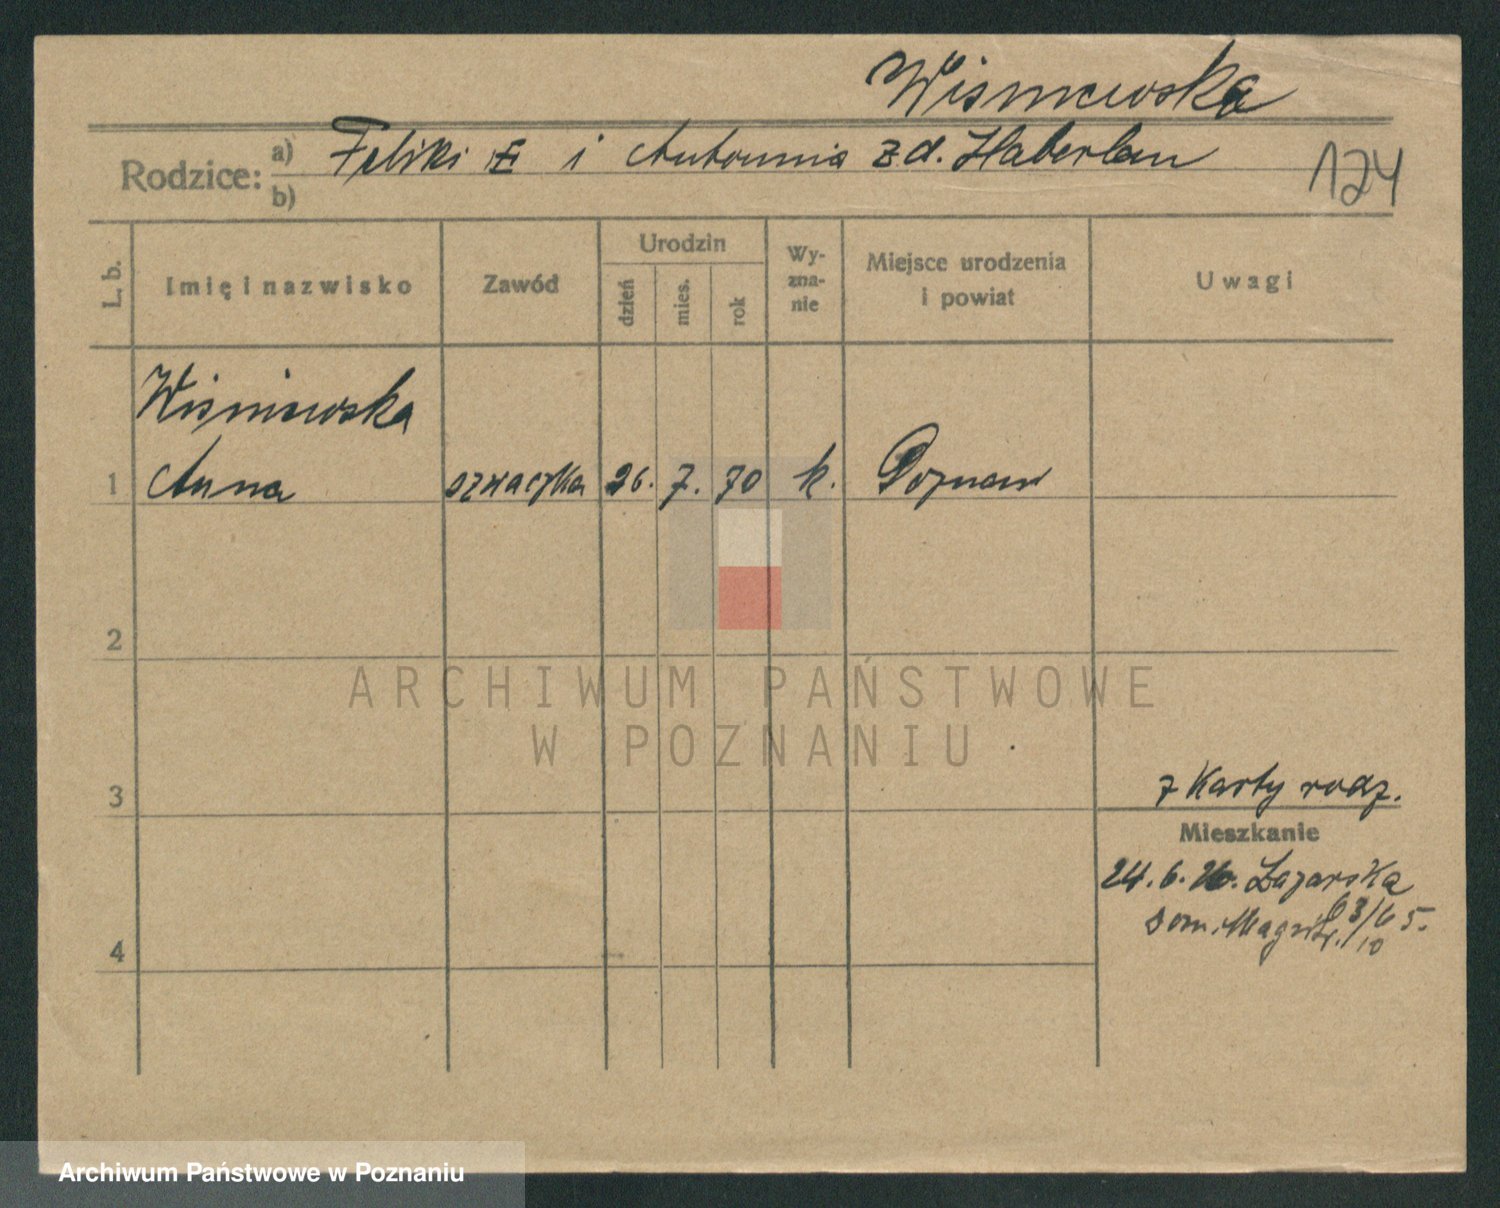 Wiśniewska
Rodzice: a) Feliks i Antonina z d. Haberlan
b)
124
L. b.
Imię i nazwisko
Zawód
Urodzin
dzień
mies.
rok
Wy-
zna-
nie
Miejsce urodzenia
i powiat
Uwagi
Wiśniewska
1 Anna szwaczka 26. 7. 70 k. Poznań
2
ARCHIWUM PAŃSTWOWE
W POZNANIU
3
z Karty rodz.
Mieszkanie
24. 6. 26. Łazarska
dom. Magistr. 63/65.
10
4
Archiwum Państwowe w Poznaniu